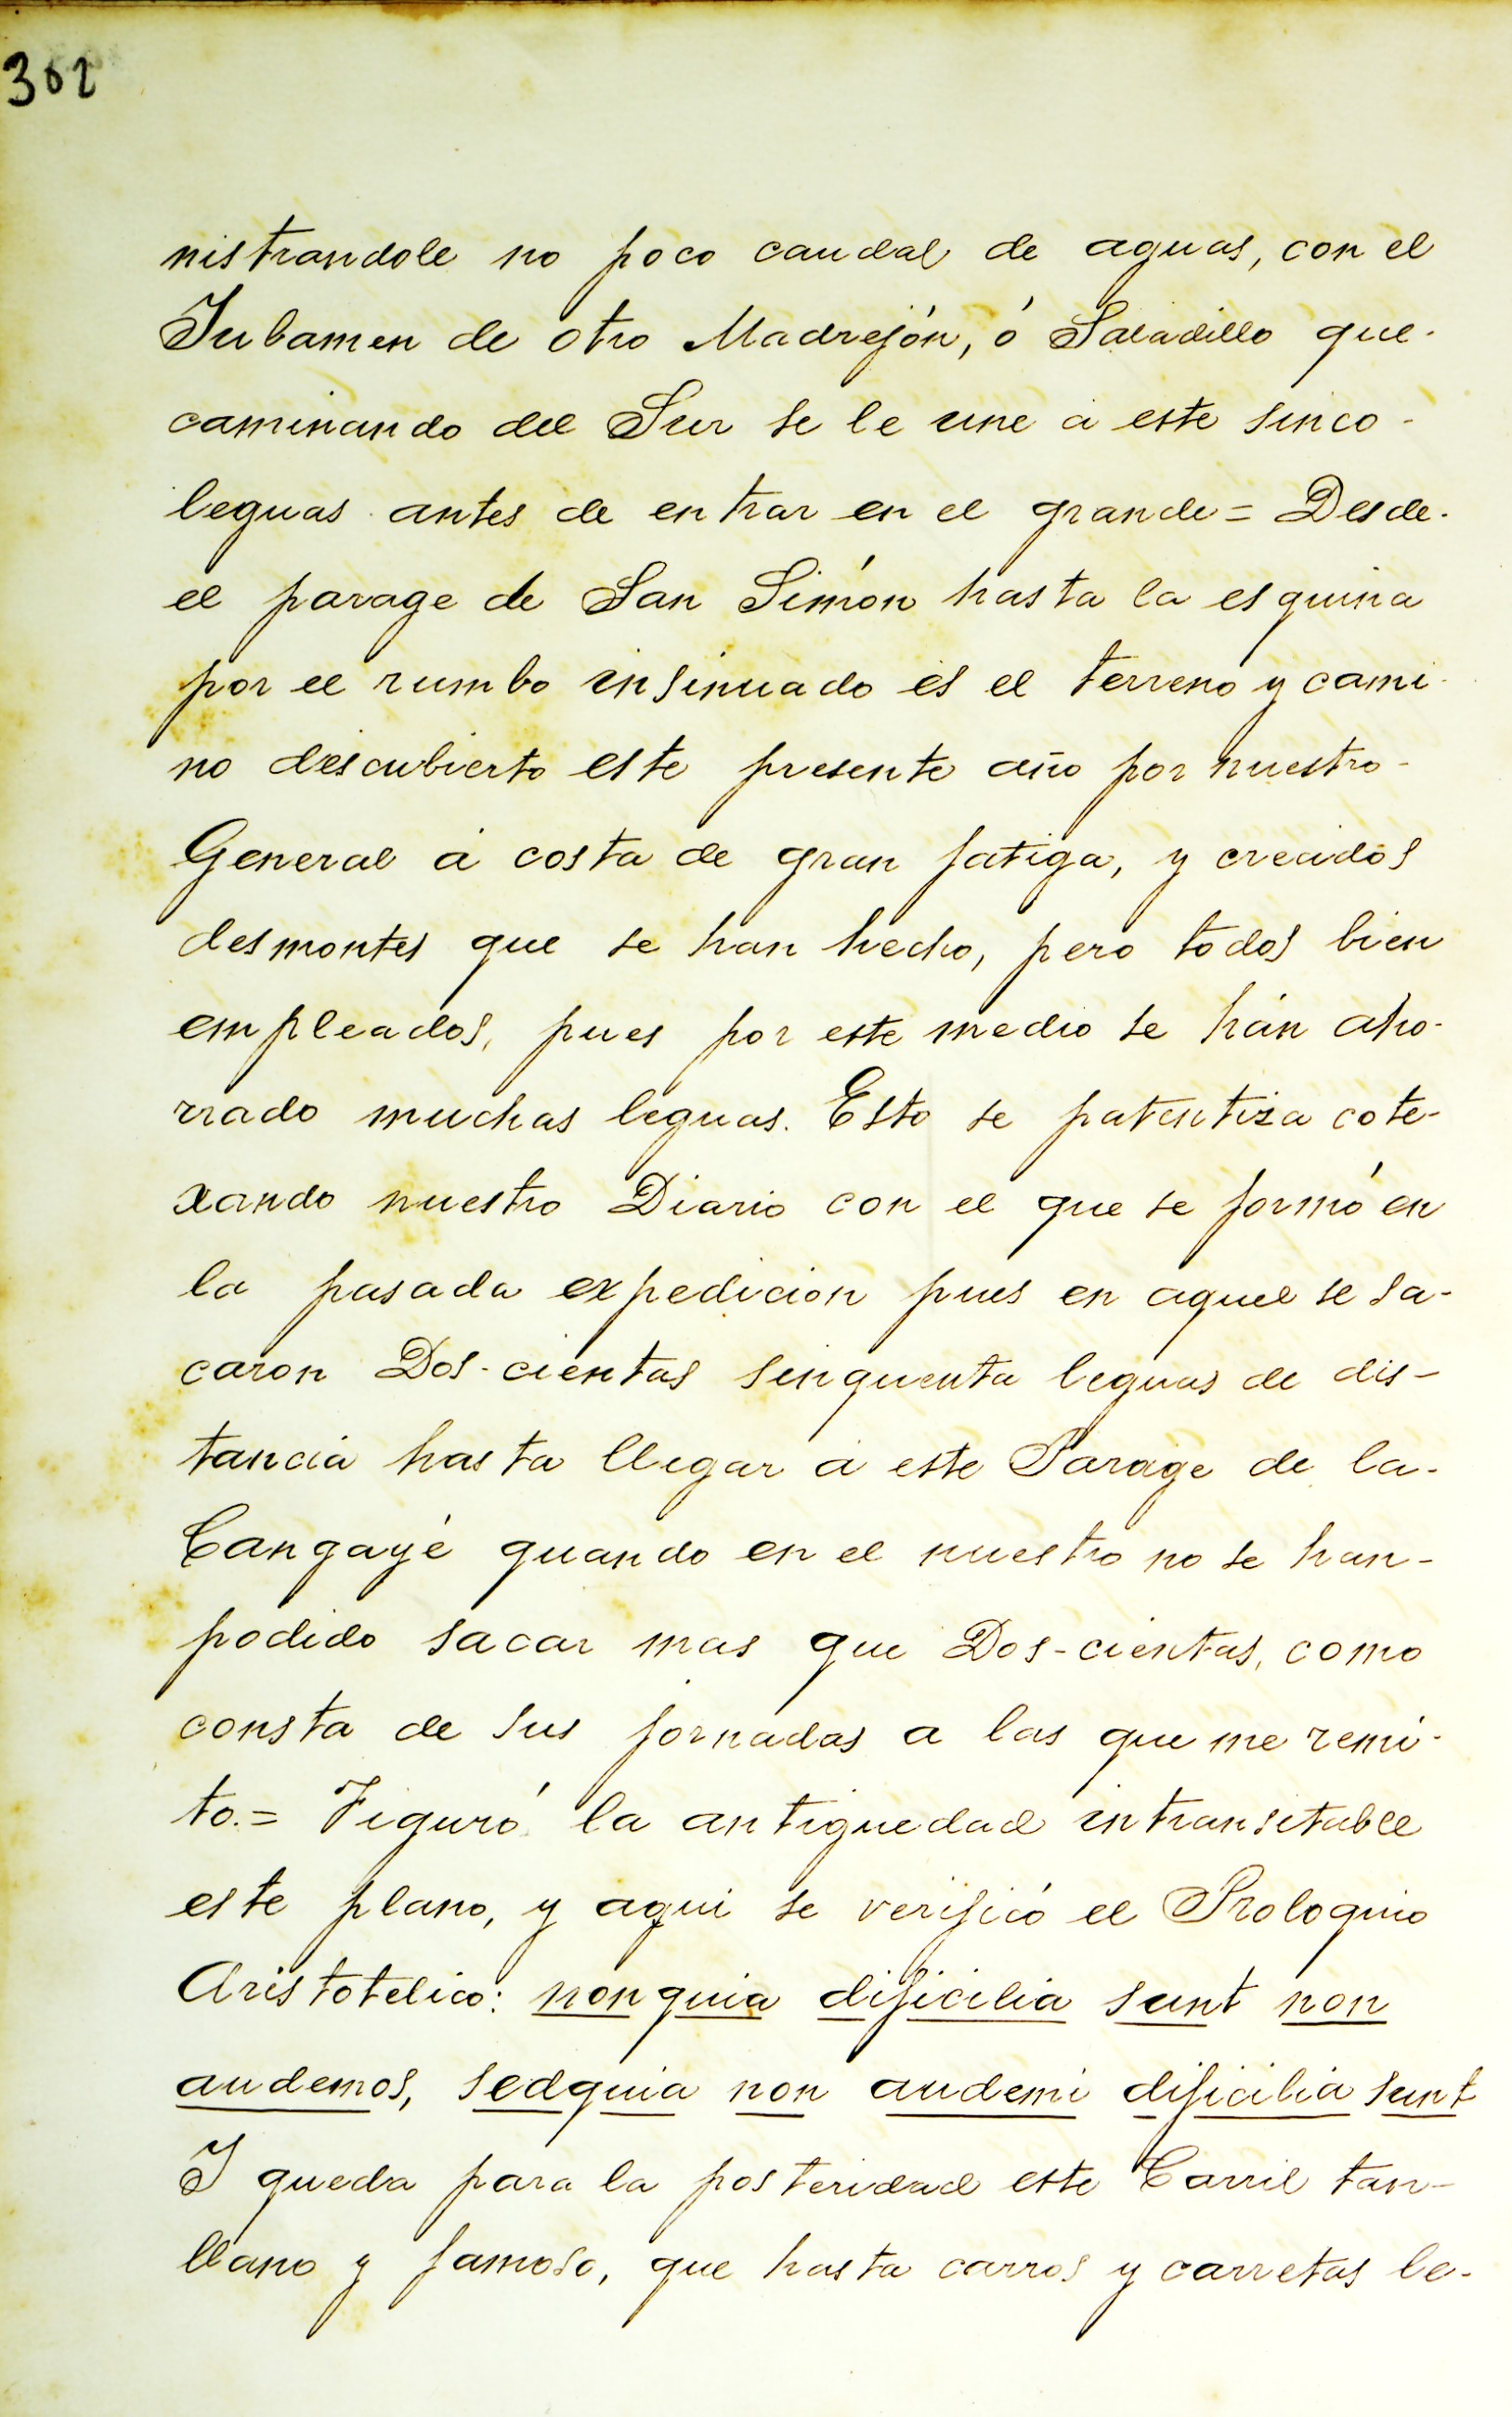 302
nistrandole no poco caudal de aguas, con el
Jubamen de otro Madrejón, ó Saladillo que-
caminando del Sur se le une á este sinco-
leguas antes de entrar en el grande = Desde-
el parage de San Simón hasta la esquina
por el rumbo insinuado es el terreno y cami-
no descubierto este presente año por nuestro-
General á costa de gran fatiga, y crecidos
desmontes que se han hecho, pero todos bien
empleados, pues por este medio se hán aho-
rrado muchas leguas. Esto se patentiza cote-
xando nuestro Diario con el que se formó en
la pasada expedicion pues en aquel se sa-
caron Dos-cientas sinquenta leguas de dis-
tancia hasta llegar á este Parage de la-
Cangayé quando en el nuestro no se han-
podido sacar mas que Dos-cientas, como
consta de sus jornadas a las que me remi-
to. = Figuró la antiguedad intransitable
este plano, y aqui se verificó el Proloquio
Aristotelico: non quia dificilia sunt non
audemos, sedquia non audemi dificilia sunt
I queda para la posteridad este Carril tan-
llano y famoso, que hasta carros y carretas le-